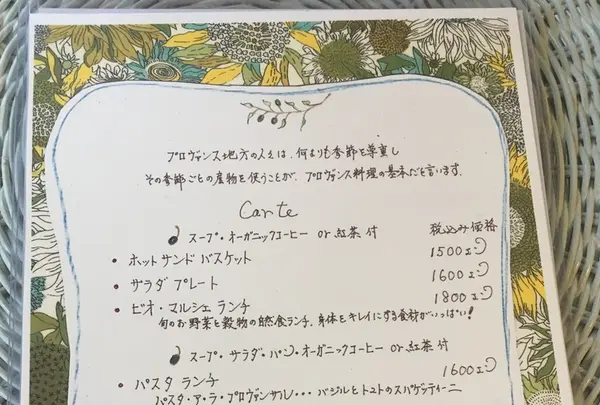 プロヴァンス地方の人々は、何よりも季節を尊重し
その季節ごとの産物を使うことが、プロヴァンス料理の基本だと言います。
Carte
スープ・オーガニックコーヒー or 紅茶 付 税込み価格
・ホットサンド バスケット 1500
・サラダ プレート 1600
・ビオ・マルシェ ランチ 1800
旬のお野菜と穀物の自然食ランチ、身体をキレイにする食材がいっぱい!
スープ・サラダ・パン・オーガニックコーヒー or 紅茶 付
・パスタ ランチ 1600
パスタ・ア・ラ・プロヴァンサル・・・バジルとトマトのスパゲッティーニ